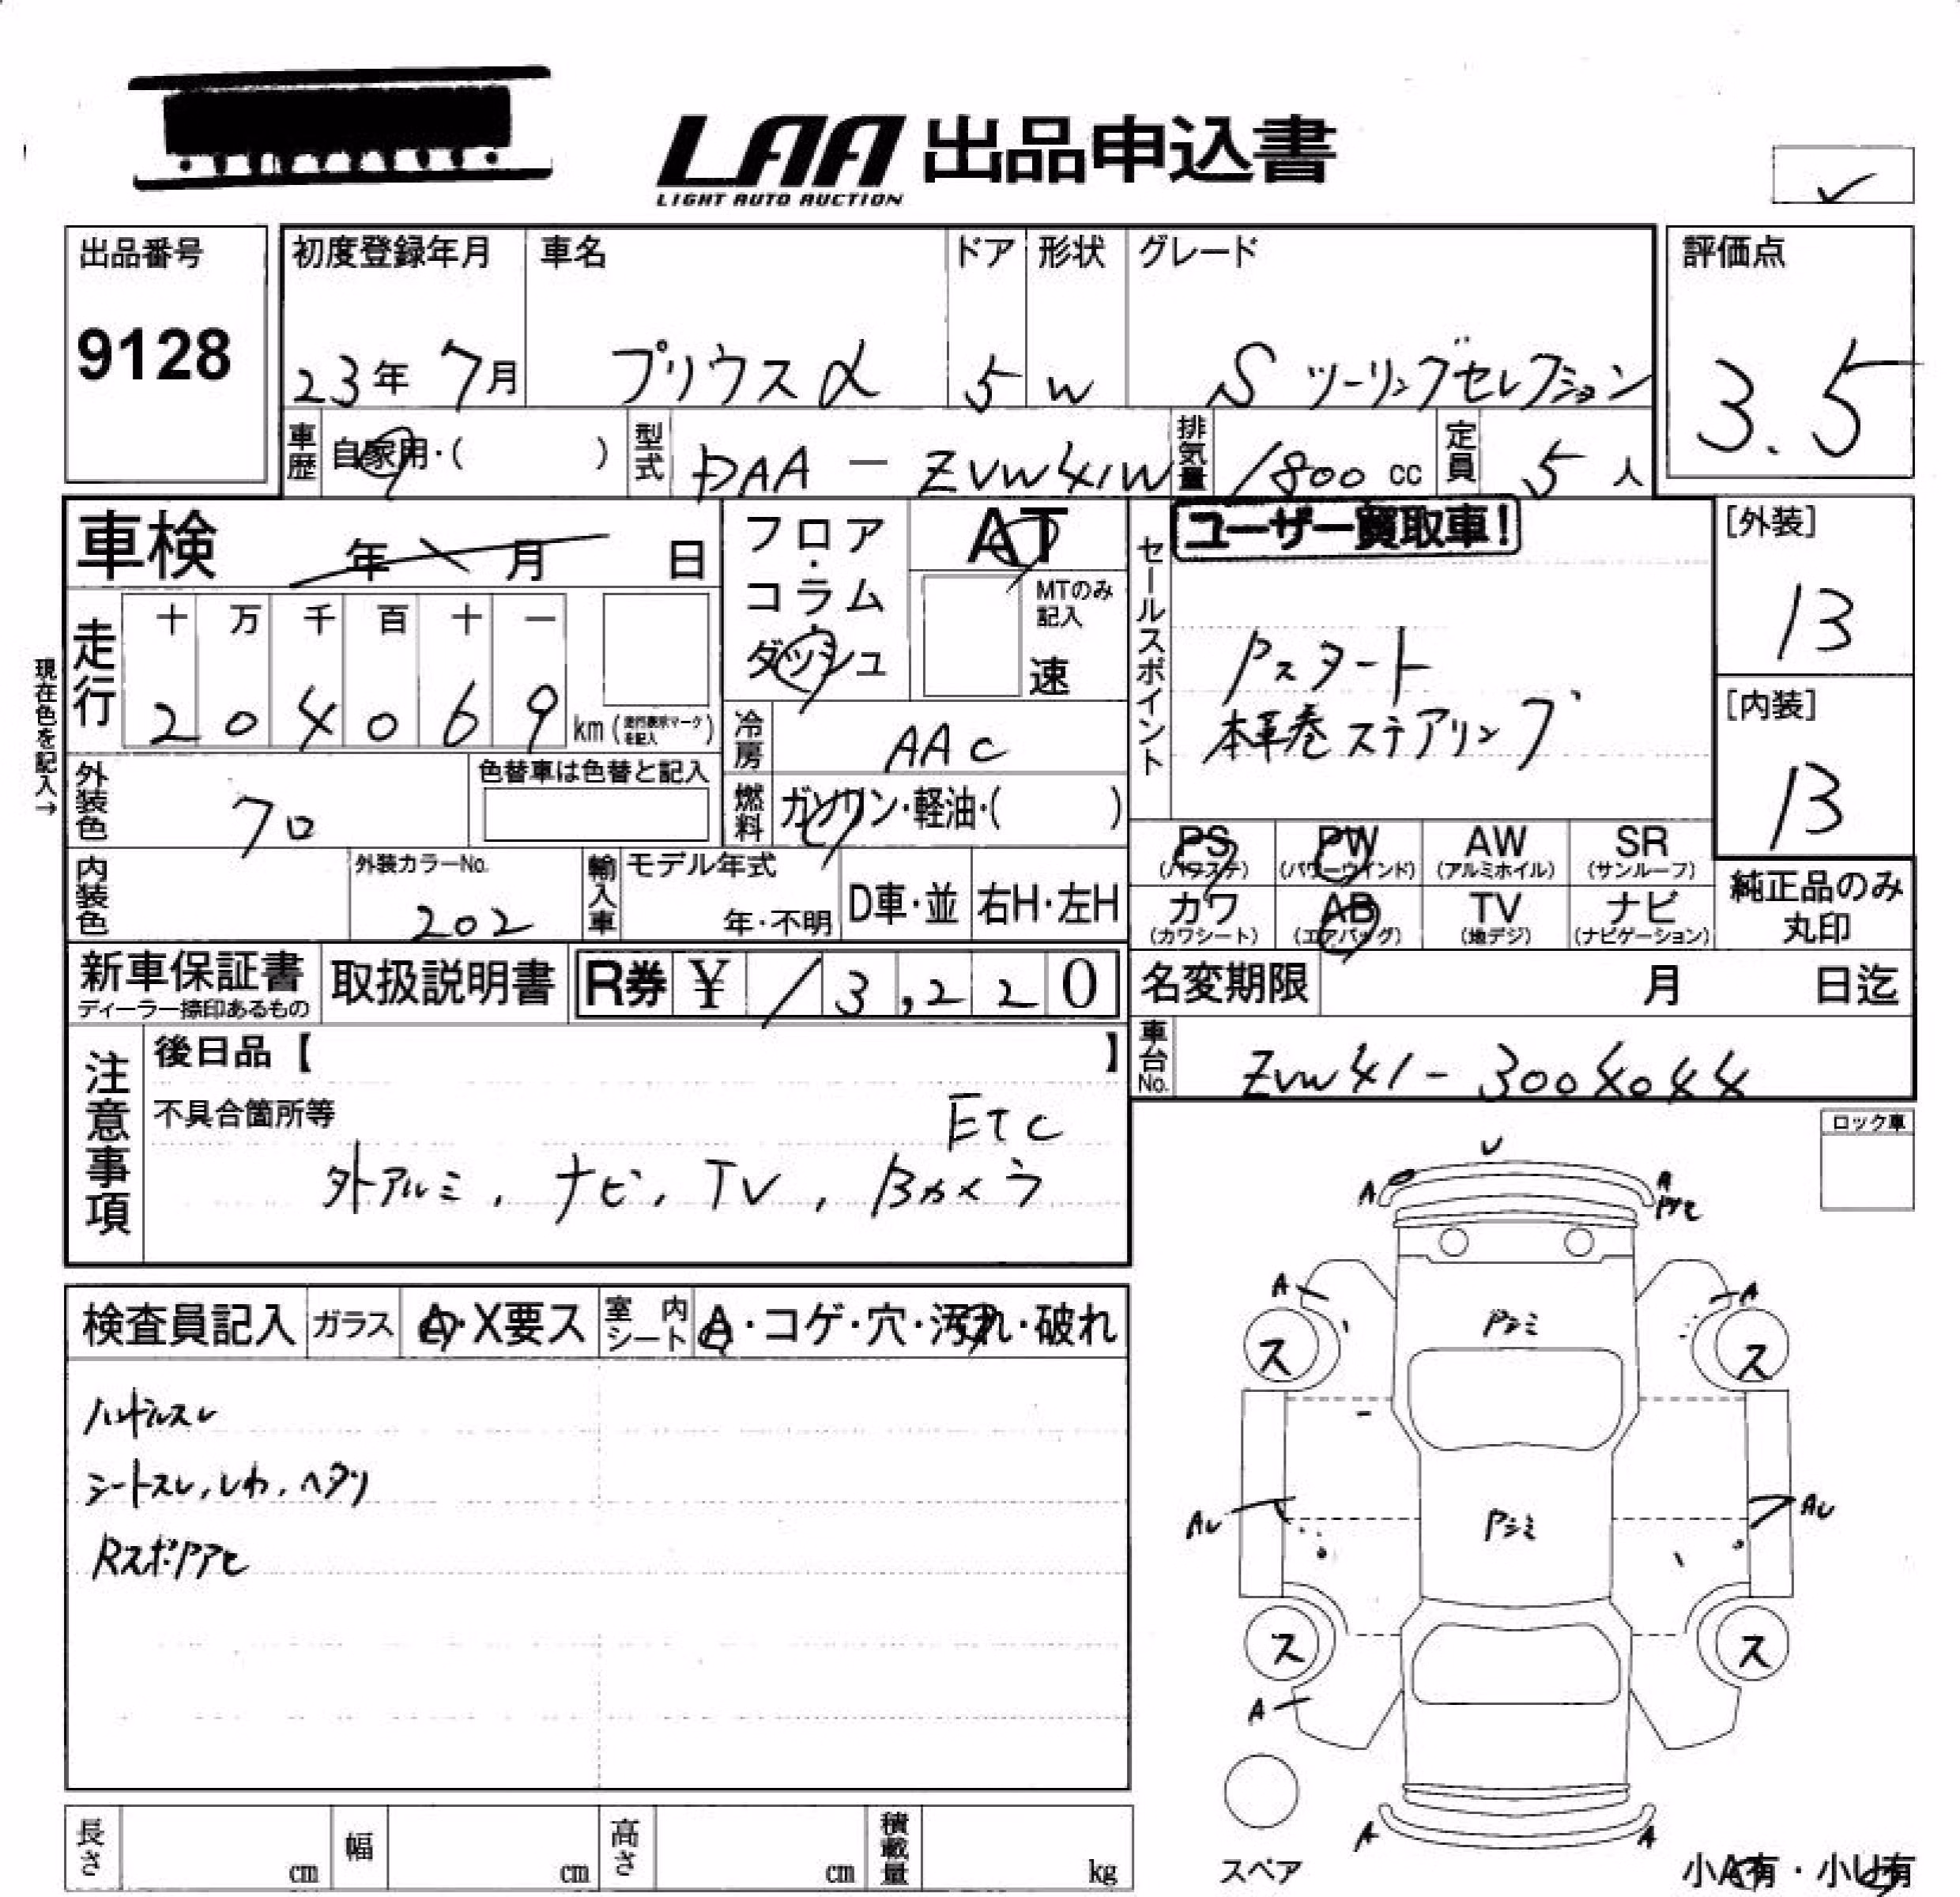 LAA 出品申込書
LIGHT AUTO AUCTION
✓
出品番号
9128
初度登録年月
23年 7月
車名
プリウスα
ドア
5
形状
W
グレード
S ツーリングセレクション
評価点
3.5
車歴
自家用・( )
型式
DAA - ZVW41W
排気量
1800 cc
定員
5 人
車検 年 月 日
フロア・コラム・ダッシュ
AT
MTのみ記入
速
セールスポイント
ユーザー買取車!
Pスタート
本革巻ステアリング
[外装]
13
[内装]
13
現在色を記入→
走行
十 万 千 百 十 一
2 0 4 0 6 9 km (走行表示マークを記入)
冷房
AAC
燃料
ガソリン・軽油・( )
外装色
クロ
色替車は色替と記入
内装色
外装カラーNo.
202
輸入車
モデル年式
年・不明
D車・並
右H・左H
PS
(パワステ)
PW
(パワーウインド)
AW
(アルミホイル)
SR
(サンルーフ)
カワ
(カワシート)
AB
(エアバッグ)
TV
(地デジ)
ナビ
(ナビゲーション)
純正品のみ
丸印
新車保証書
ディーラー捺印あるもの
取扱説明書
R券 ¥ 13,220
名変期限 月 日迄
車台No.
ZVW41-3004044
注意事項
後日品【 】
不具合箇所等
ETC
外アルミ, ナビ, TV, Bカメラ
ロック車
検査員記入
ガラス
A・X要ス
室内シート
A・コゲ・穴・汚れ・破れ
ハンドルスレ
シートスレ, しわ, ヘタリ
Rスポイアセ
U
A
A
A
A
Pシミ
ス
ス
AU
Pシミ
AU
ス
ス
A
A
A
スペア
小A有・小U有
長さ cm
幅 cm
高さ cm
積載量 kg